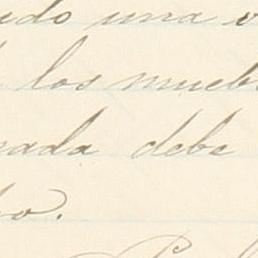 ido una v
los mueb
nada debe
ho.